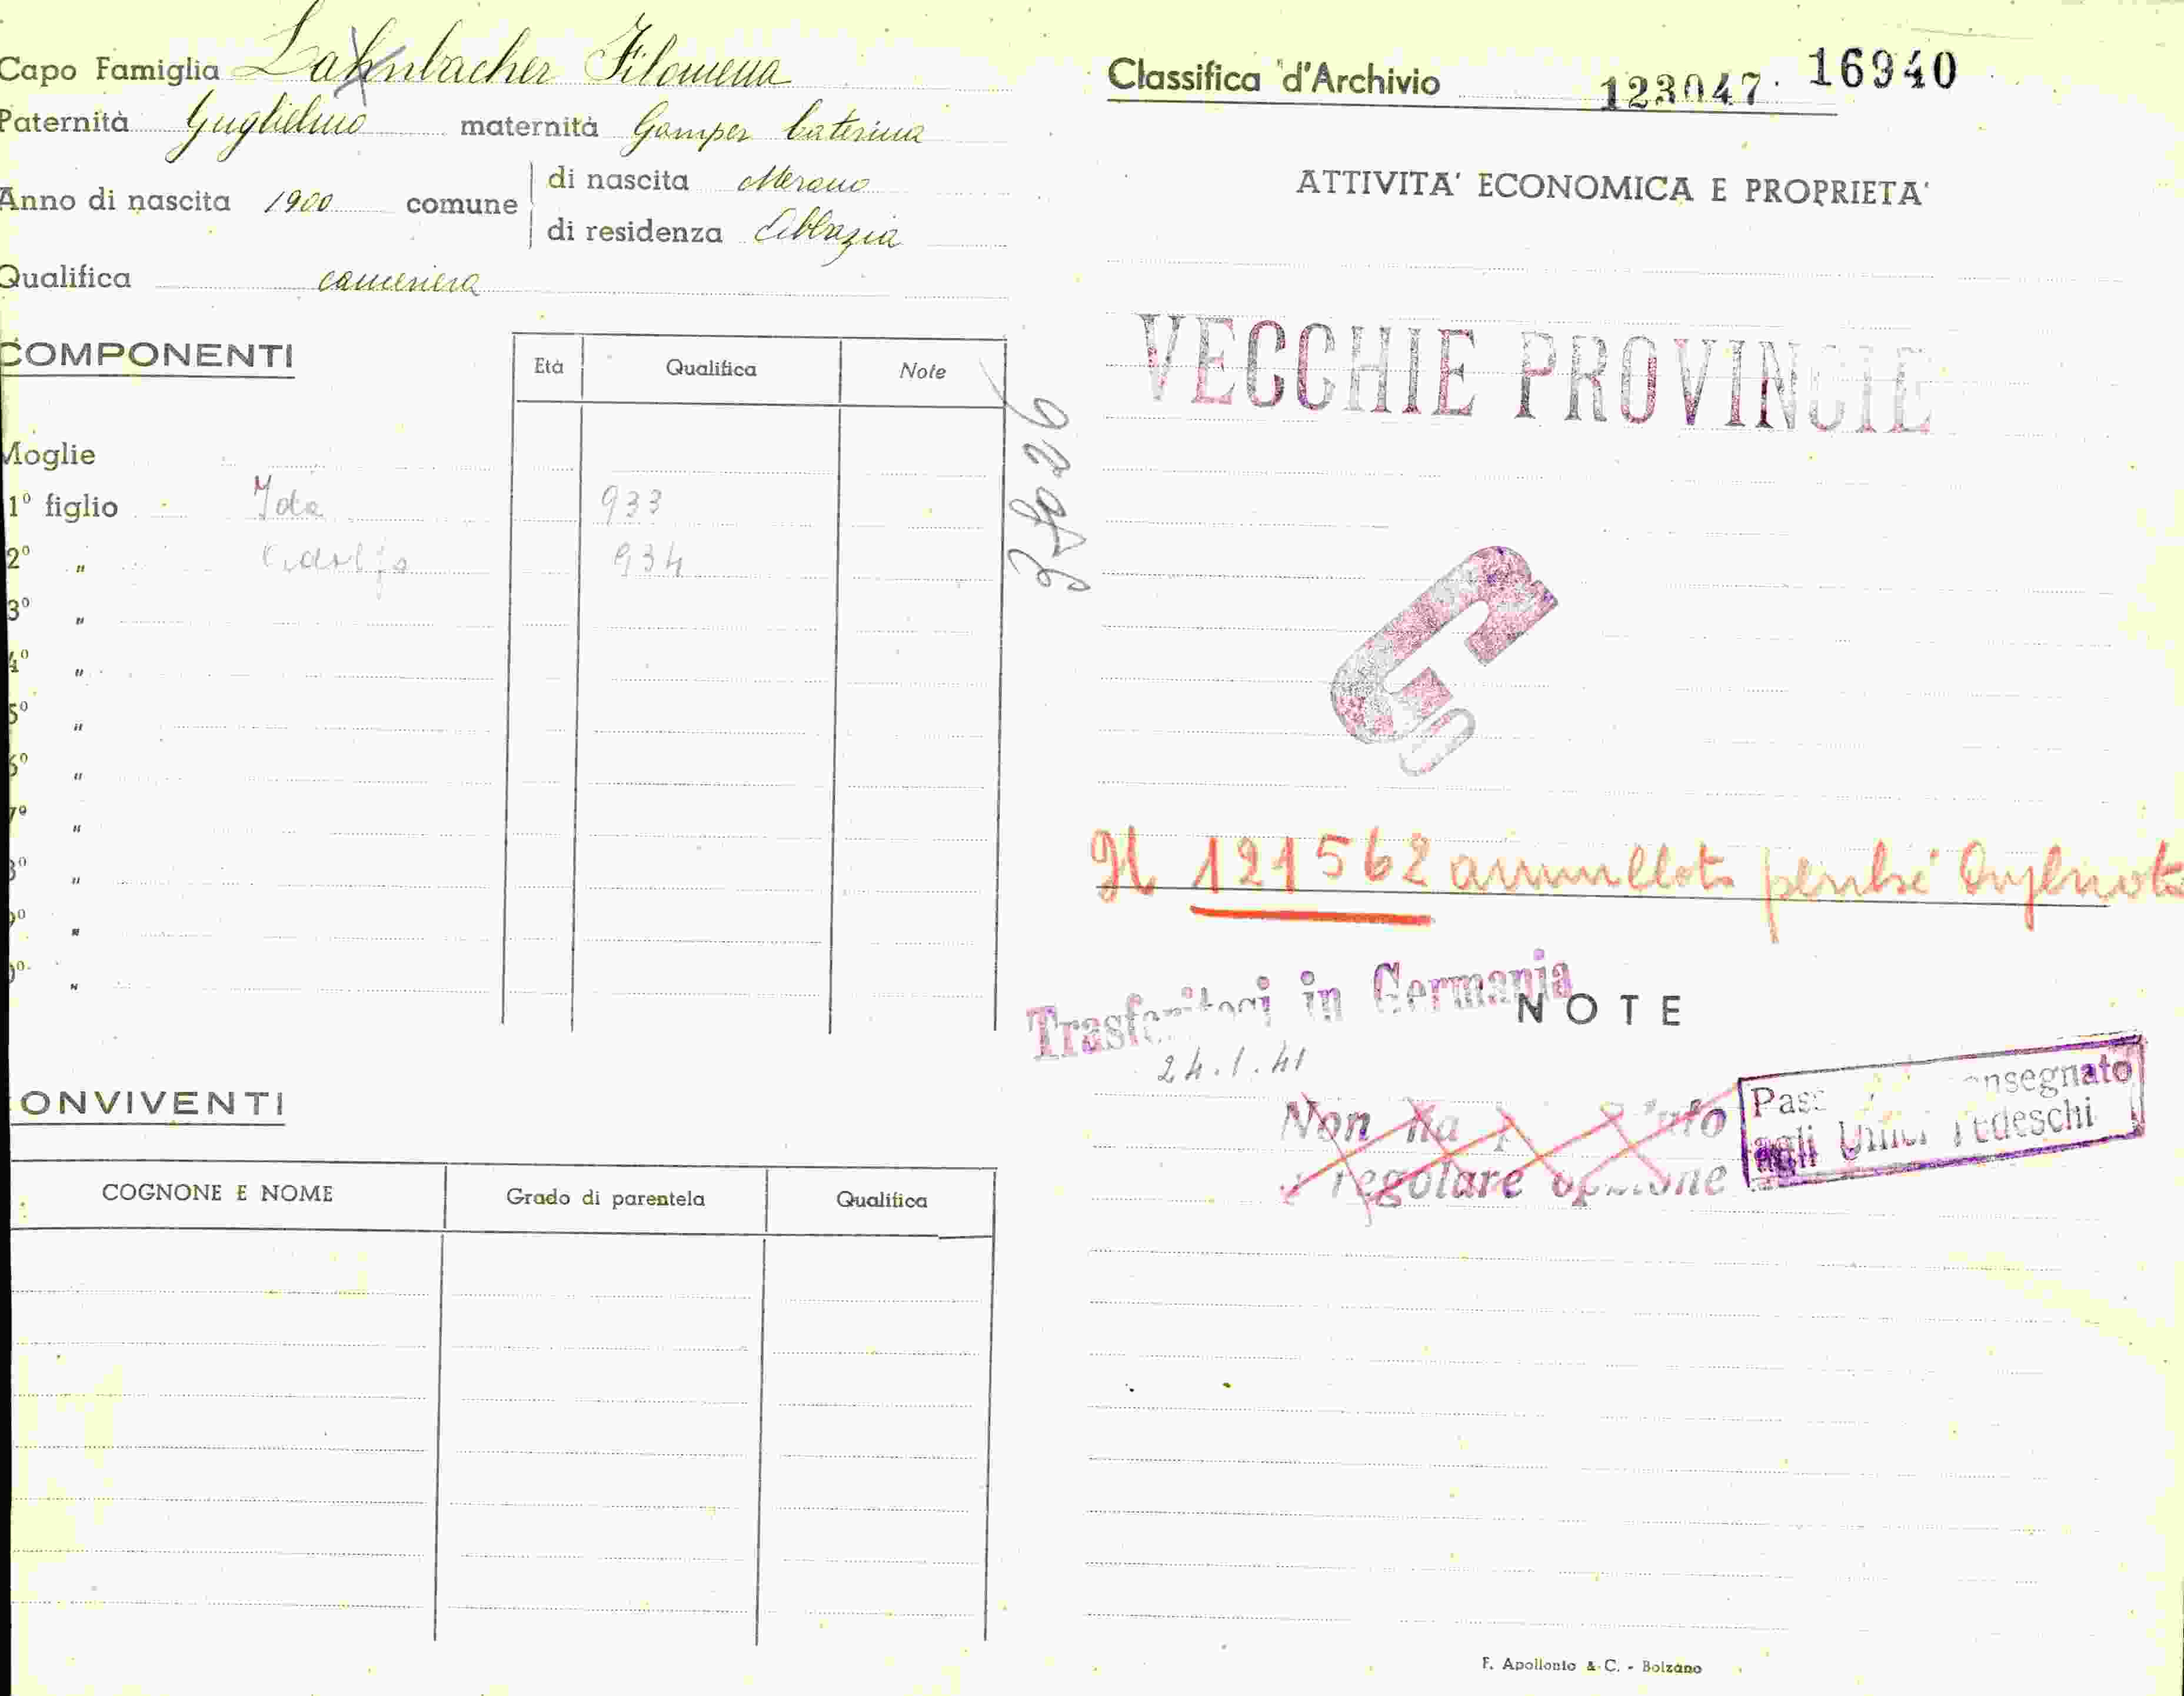 Capo Famiglia Lahnbacher Filomena
Paternità Guglielmo maternità Gamper Caterina
Anno di nascita 1900 comune di nascita Merano
di residenza Abbazia
Qualifica cameriera
COMPONENTI
Età Qualifica Note
Moglie
1º figlio Ida 933
2º " 934
3º "
4º "
5º "
6º "
7º "
8º "
9º "
0º "
ONVIVENTI
COGNONE E NOME Grado di parentela Qualifica
Classifica d'Archivio 123047 16940
ATTIVITA' ECONOMICA E PROPRIETA'
VECCHIE PROVINCIE
Il 121562 annullato perché
Trasferitosi in Germania
NOTE
24.1.41
Non ha
regolare opzione
Pass nsegnato
agli Uffici Tedeschi
F. Apollonio & C. - Bolzano